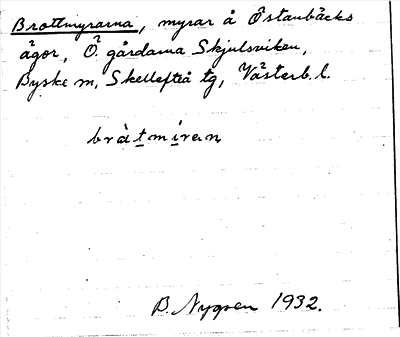 Brottmyrarna, myrar å Östanbäcks
ägor, Ö. gårdarna Skjulsviken,
Byske sn, Skellefteå tg, Västerb. l.
bråtmiran
B. Nygren 1932.